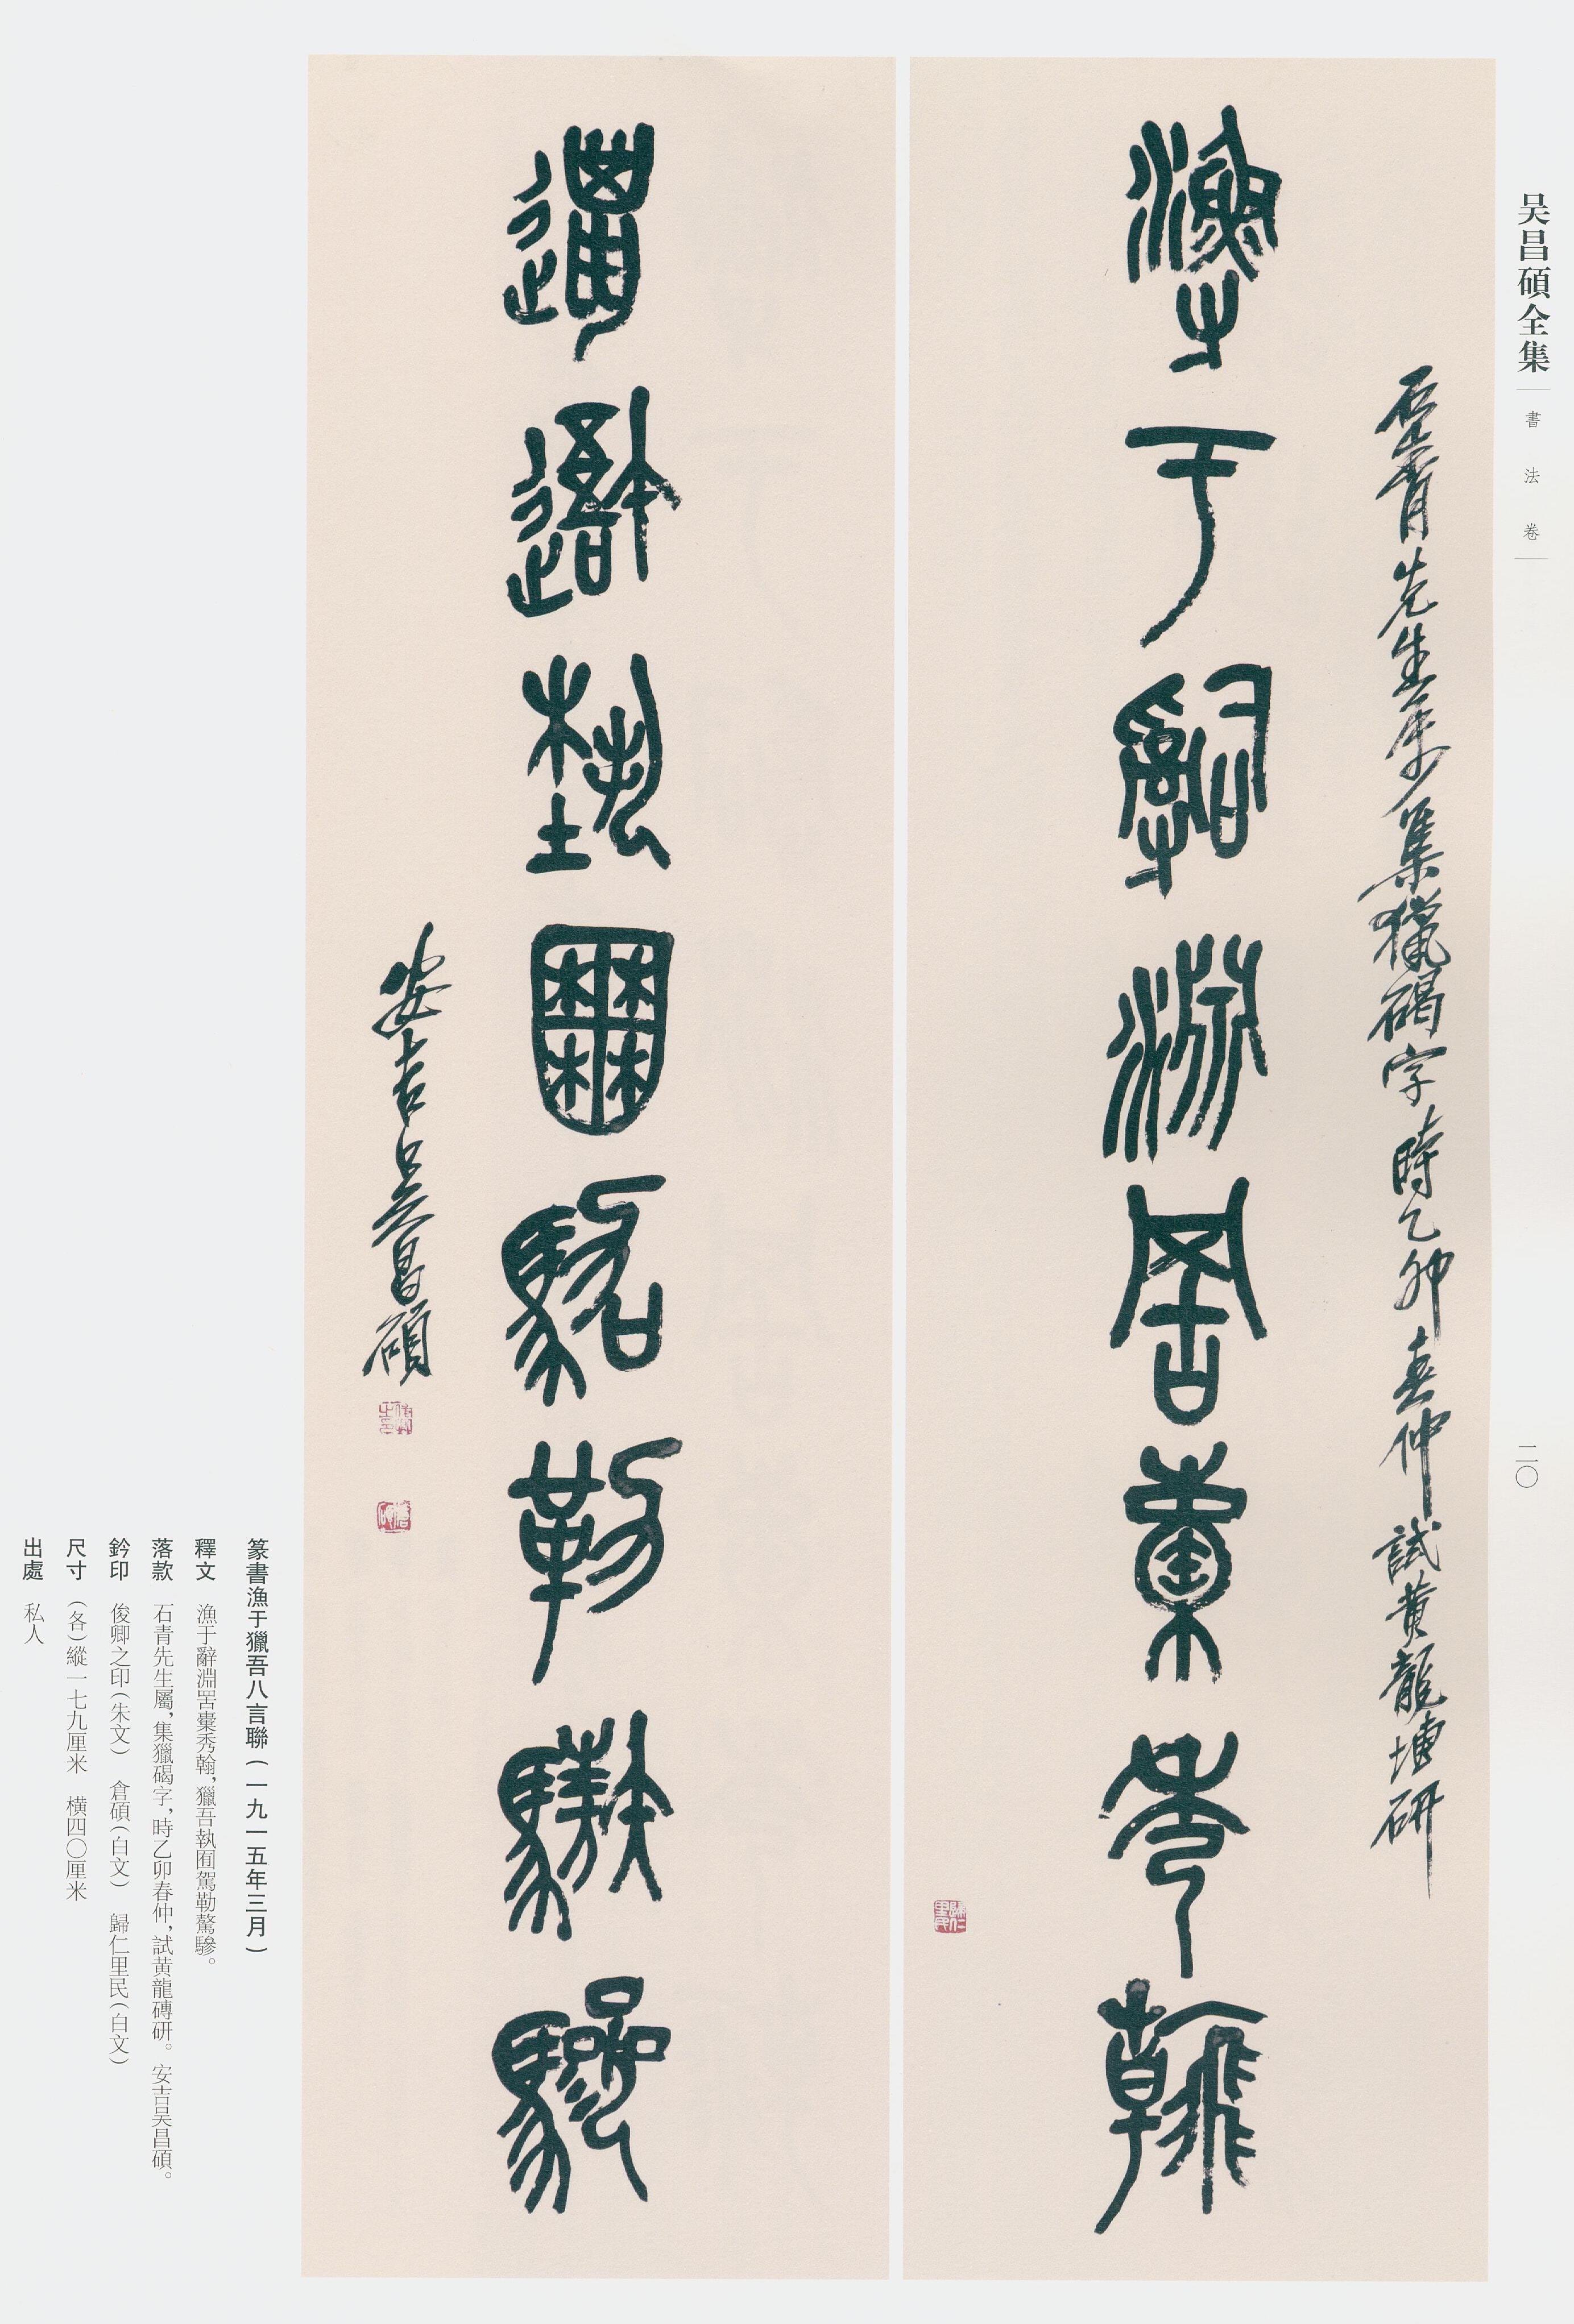 吴昌碩全集
書法卷
二〇
石青先生屬集獵碣字時乙卯春仲試黄龍塼研
漁于辭淵罟橐秀翰
歸仁里民
獵吾執囿駕勒驁驂
安吉吴昌碩
俊卿之印
倉碩
篆書漁于獵吾八言聯(一九一五年三月)
釋文 漁于辭淵罟橐秀翰,獵吾執囿駕勒驁驂。
落款 石青先生屬,集獵碣字,時乙卯春仲,試黄龍磚研。安吉吴昌碩。
鈐印 俊卿之印(朱文) 倉碩(白文) 歸仁里民(白文)
尺寸 (各)縱一七九厘米 橫四〇厘米
出處 私人